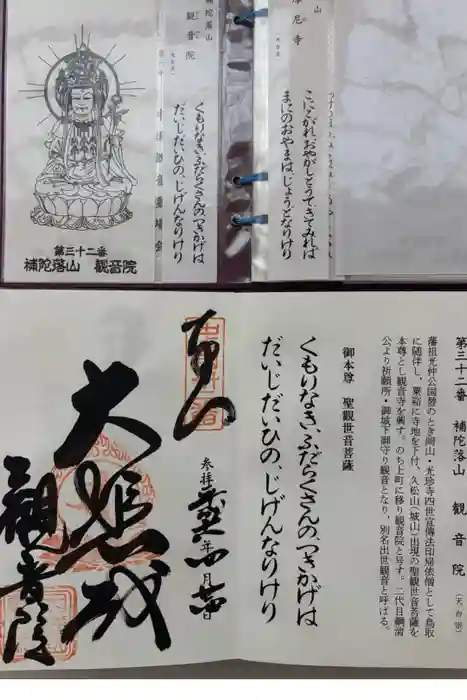 第三十二番
補陀落山 観音院
陀落山
観音院
(天台宗)
くもりなきふだらくさんの、つきかげは
だいじだいひの、じげんなりけり
山
摩尼寺
(天台宗)
こにこがれおやがしとうてきてみれば
まにのおやまは、じょうどとなりけり
第三十二番 補陀落山 観音院 (天台宗)
藩祖光仲公国替のとき岡山・光珍寺四世宣伝法印帰依僧として鳥取
に随伴し、粟谷に寺地を下付、久松山(城山)出現の聖観世音菩薩を
本尊とし観音寺を興す。のち上町に移り観音院と号す。二代目綱清
公より祈願所・御城下御守り観音となり、別名出世観音と呼ばる。
御本尊 聖観世音菩薩
くもりなきふだらくさんの、つきかげは
だいじだいひの、じげんなりけり
奉拝
参拝
年
月
大悲殿
観音院